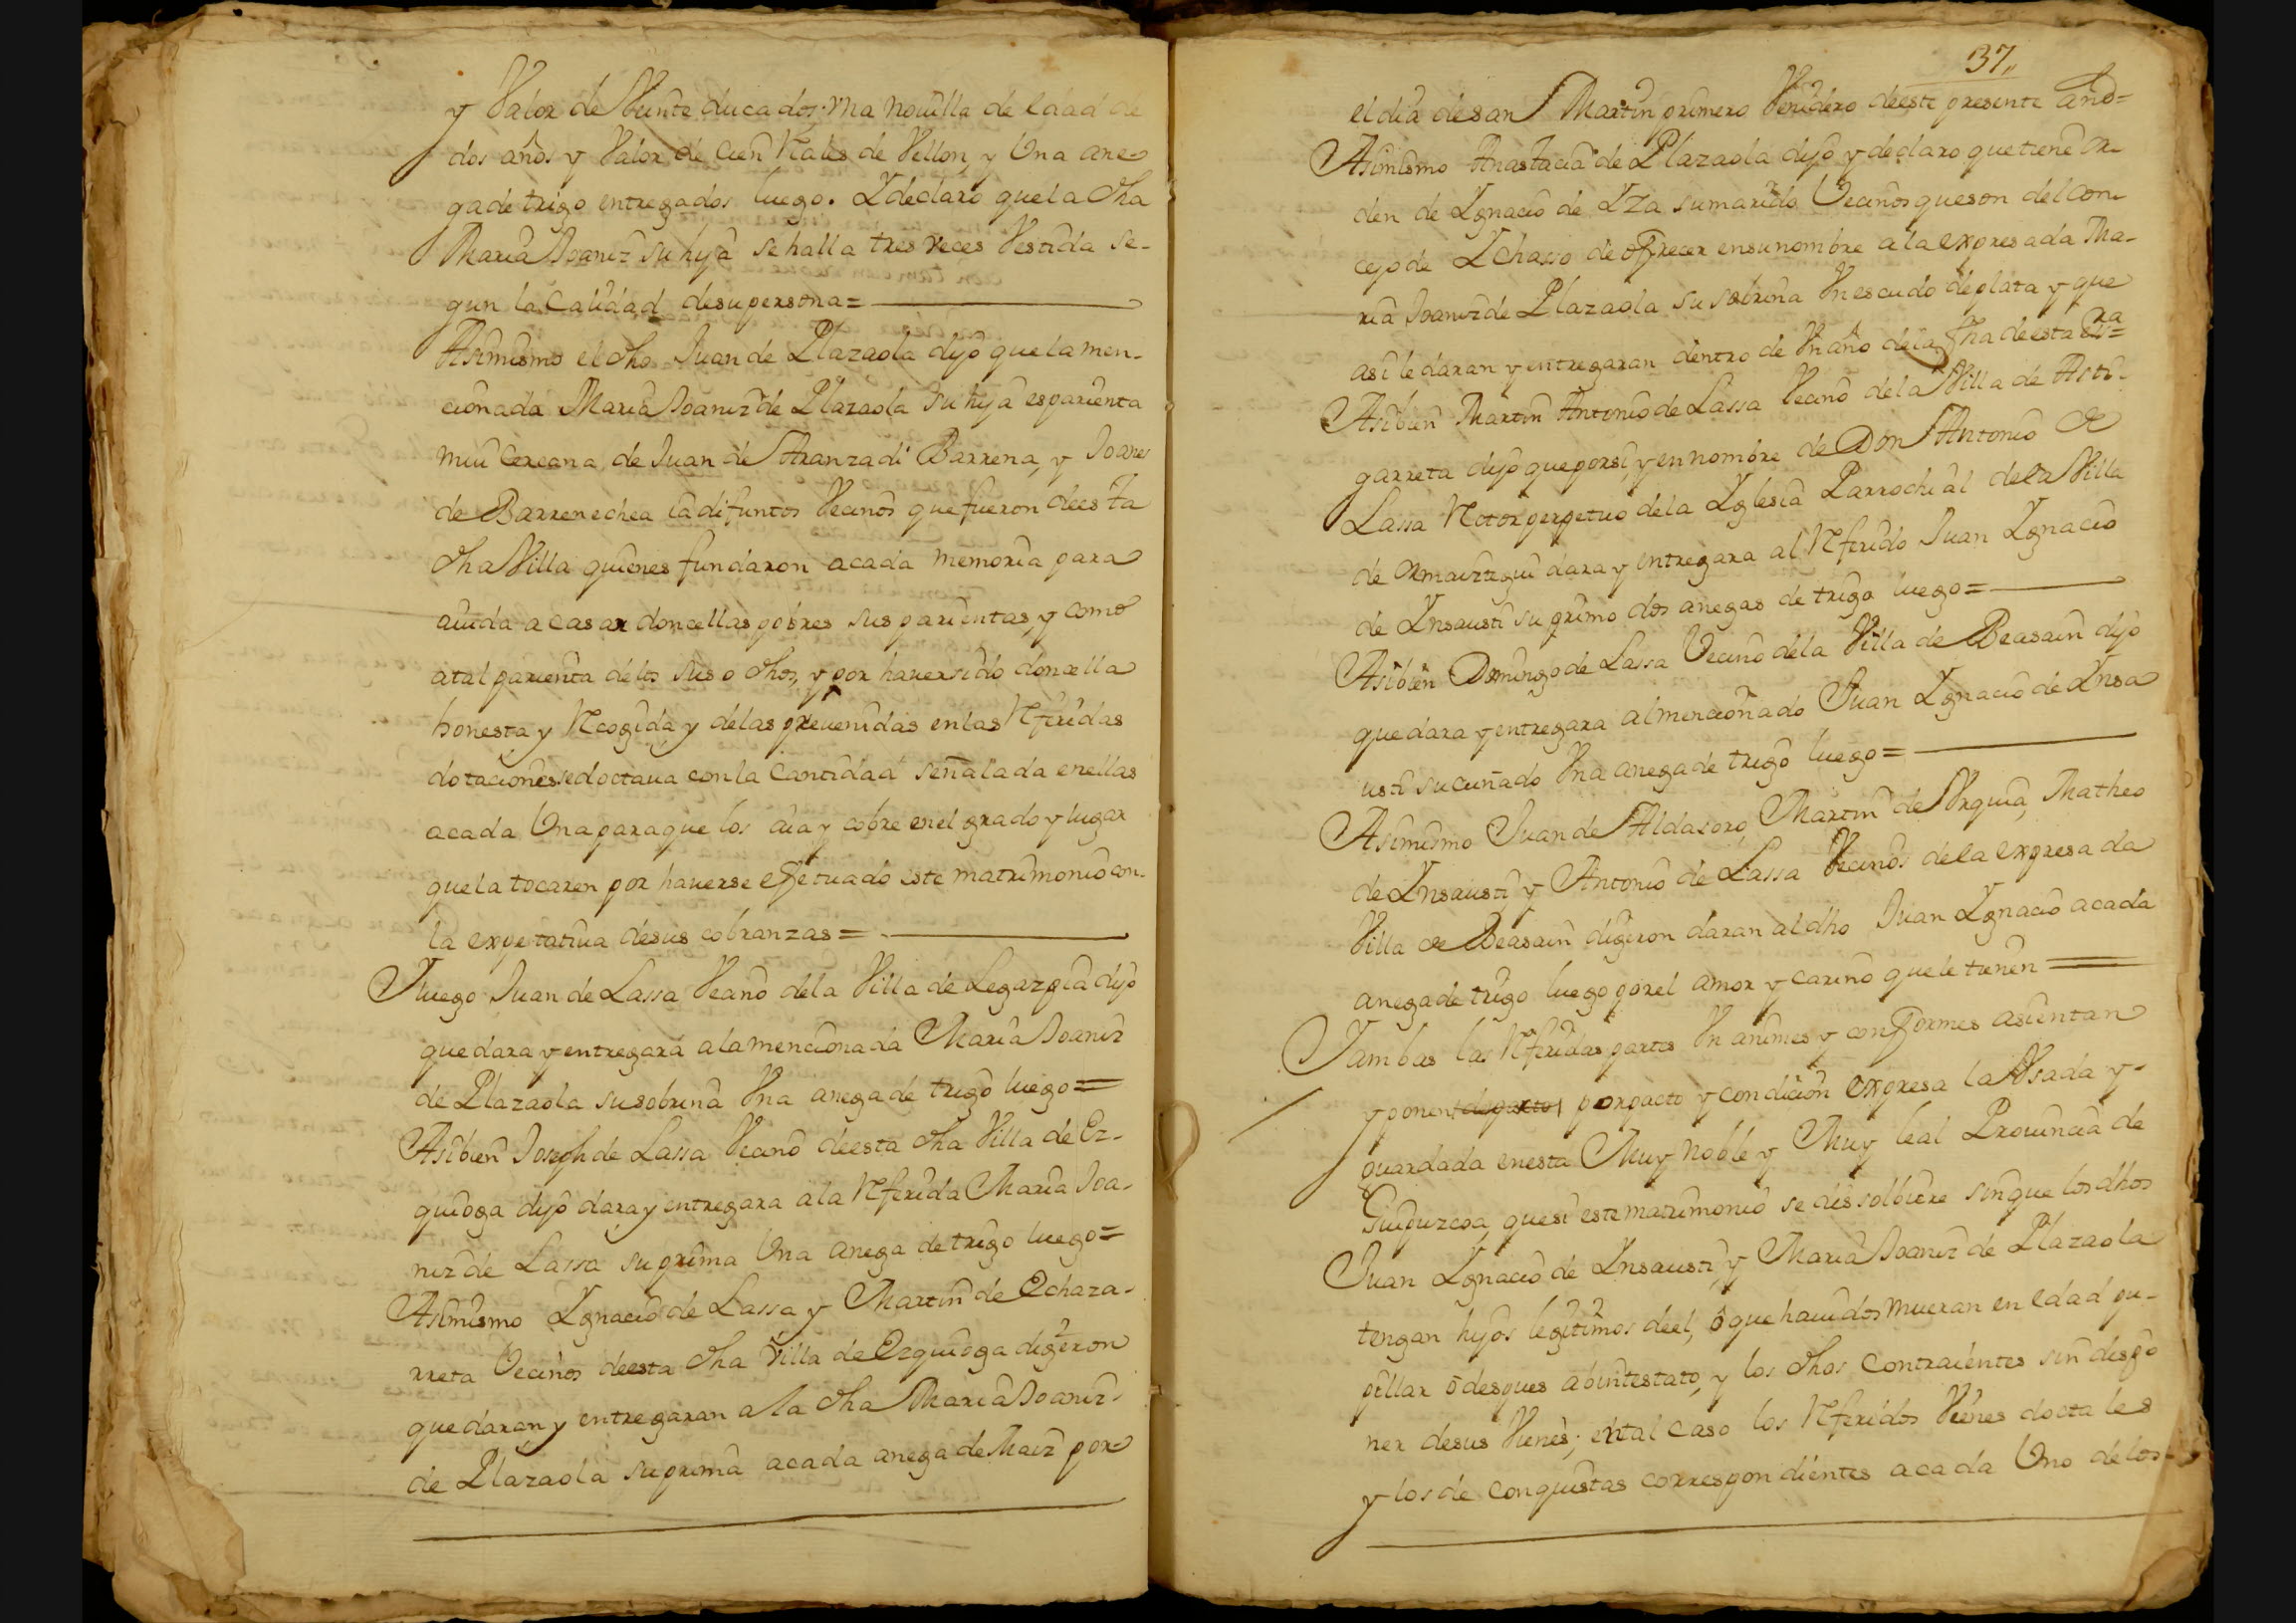 y Valor de Veinte ducados. Vna nouilla de edad de
dos años y Valor de cien Rales de Vellon, y Una ane-
ga de trigo entregados luego. Y declaro que la dha
Maria Joaniz su hija se halla tres veces Vestida se-
gun la Calidad de su persona=
Asimismo el dho Juan de Plazaola dijo que la men-
cionada Maria Joaniz de Plazaola su hija es parienta
mui cercana de Juan de Aranzadi Barrena, y Joanes
de Barrenechea ia difuntos Vecinos que fueron de esta
dha Villa quienes fundaron acada memoria para
aiuda a casar doncellas pobres sus parientas, y como
atal parienta de los suso dhos, y por hauer sido doncella
honesta y Recogida, y de las preuenidas en las Referidas
dotaciones se doctaua con la Cantidad señalada en ellas
acada Una para que los aia y cobre en el grado y lugar
que la tocaren por hauerse efetuado este matrimonio con
la expetatiua de sus cobranzas=
Iluego Juan de Lassa Vecino de la Villa de Legazpia dijo
que dara y entregara ala mencionada Maria Joaniz
de Plazaola su sobrina Vna anega de trigo luego=
Asibien Joseph de Lassa Vecino de esta dha Villa de Ez-
quioga dijo dara y entregara a la Referida Maria Joa-
niz de Lassa su prima Una anega de trigo luego=
Asimismo Ygnacio de Lassa y Martin de Echaza-
rreta Vecinos de esta dha Villa de Ezquioga digeron
que daran y entregaran a la dha Maria Joaniz
de Plazaola su prima acada anega de Maiz por
37,,
el dia de san Martin primero Venidero de este presente año=
Asimismo Anastacia de Plazaola dijo y declaro que tiene or-
den de Ygnacio de Yza su marido Vecinos que son del con-
cejo de Ychasso de ofrecer en su nombre a la expresada Ma-
ria Joaniz de Plazaola su sobrina Vn escudo de plata y que
asi le daran y entregaran dentro de Vn año de la fha de esta esra=
Asibien Martin Antonio de Lassa Vecino de la Villa de Asti-
garreta dijo que por si, y en nombre de Don Antonio de
Lassa Retor perpetuo de la Yglesia Parrochial de la Villa
de Ormaiztegui dara y entregara al Referido Juan Ygnacio
de Ynsausti su primo dos anegas de trigo luego=
Asibien Domingo de Lassa Vecino de la Villa de Beasain dijo
que dara y entregara al mencionado Juan Ygnacio de Ynsa
usti su cuñado Vna anega de trigo luego=
Asimismo Juan de Aldasoro, Martin de Vrquia, Matheo
de Ynsausti, y Antonio de Lassa Vecinos de la expresada
Villa de Beasain digeron daran al dho Juan Ygnacio acada
anega de trigo luego por el amor y cariño que le tienen=
Jambas las Referidas partes Vnanimes y conformes asientan
y ponen de pacto por pacto y condicion expresa la Vsada y
guardada en esta Muy Noble y Muy leal Prouincia de
Guipuzcoa, que si este matrimonio se dissolbiere sin que los dhos
Juan Ygnacio de Ynsausti, y Maria Joaniz de Plazaola
tengan hijos legitimos de el, ó que hauidos mueran en edad pu-
pillar ó despues abintestato, y los dhos Contraientes sin dispo
ner de sus Vienes; en tal caso los Referidos Vienes doctales
y los de conquistas correspondientes acada Uno de los